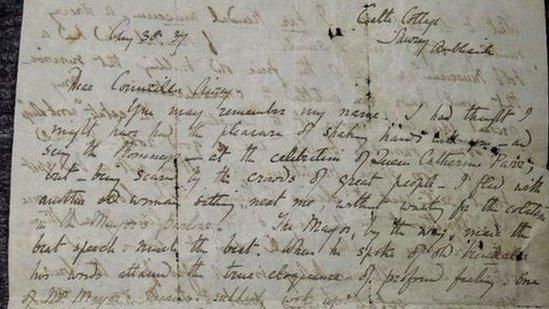 Castle Cottage
Sawrey
Ambleside
Aug 30. 37
Dear Councillor Airey
You may remember my name. I had thought I
might have had the pleasure of shaking hands with you - and
seeing the Romney - at the celebration of Queen Catherine Parr;
but - being scared by the crowds of great people - I fled with
another old woman sitting near me without waiting for the collation
in the Mayor's Parlour. The Mayor, by the way, made the
best speech - much the best. When he spoke of old Kendal
his words attained the true eloquence of profound feeling. One
of Mr Mayor